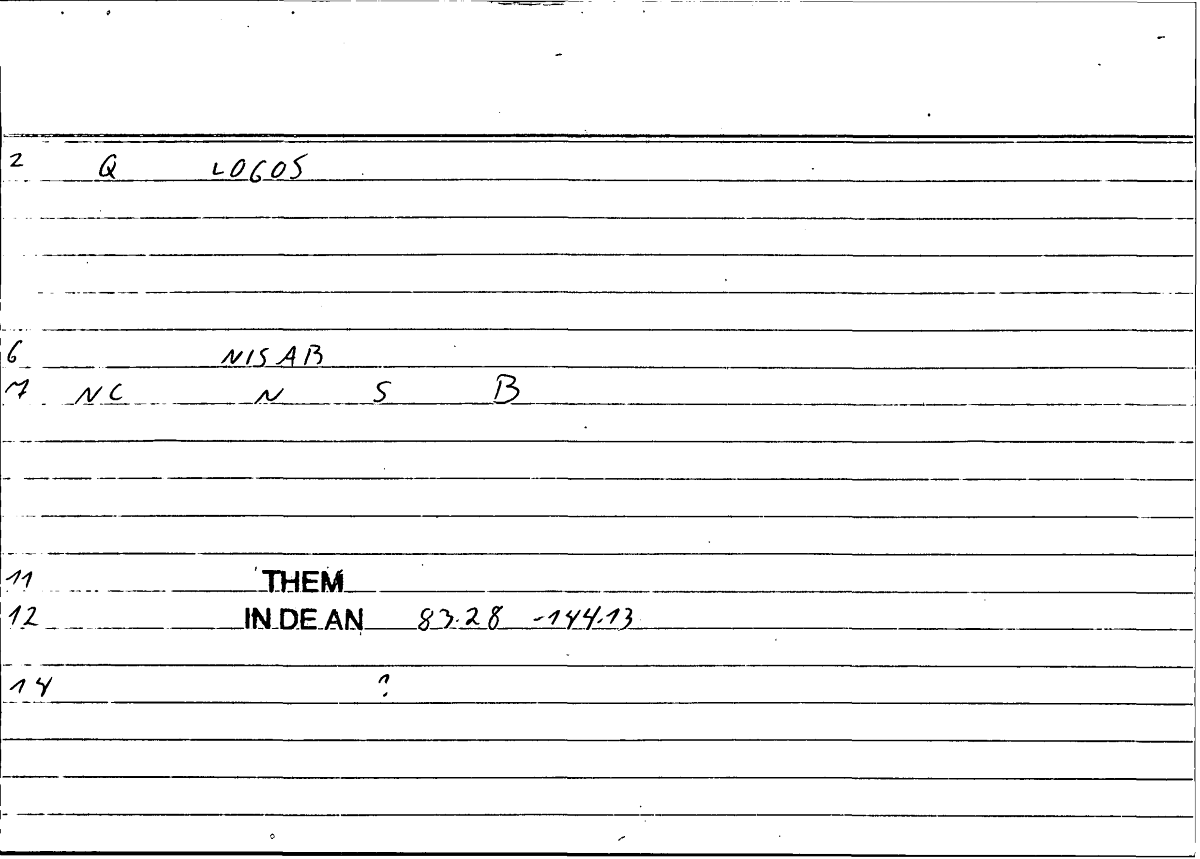 2 Q LOGOS
6 NISAB
7 NC N S B
11 THEM
12 IN DE AN 83.28 -144.13
14 ?